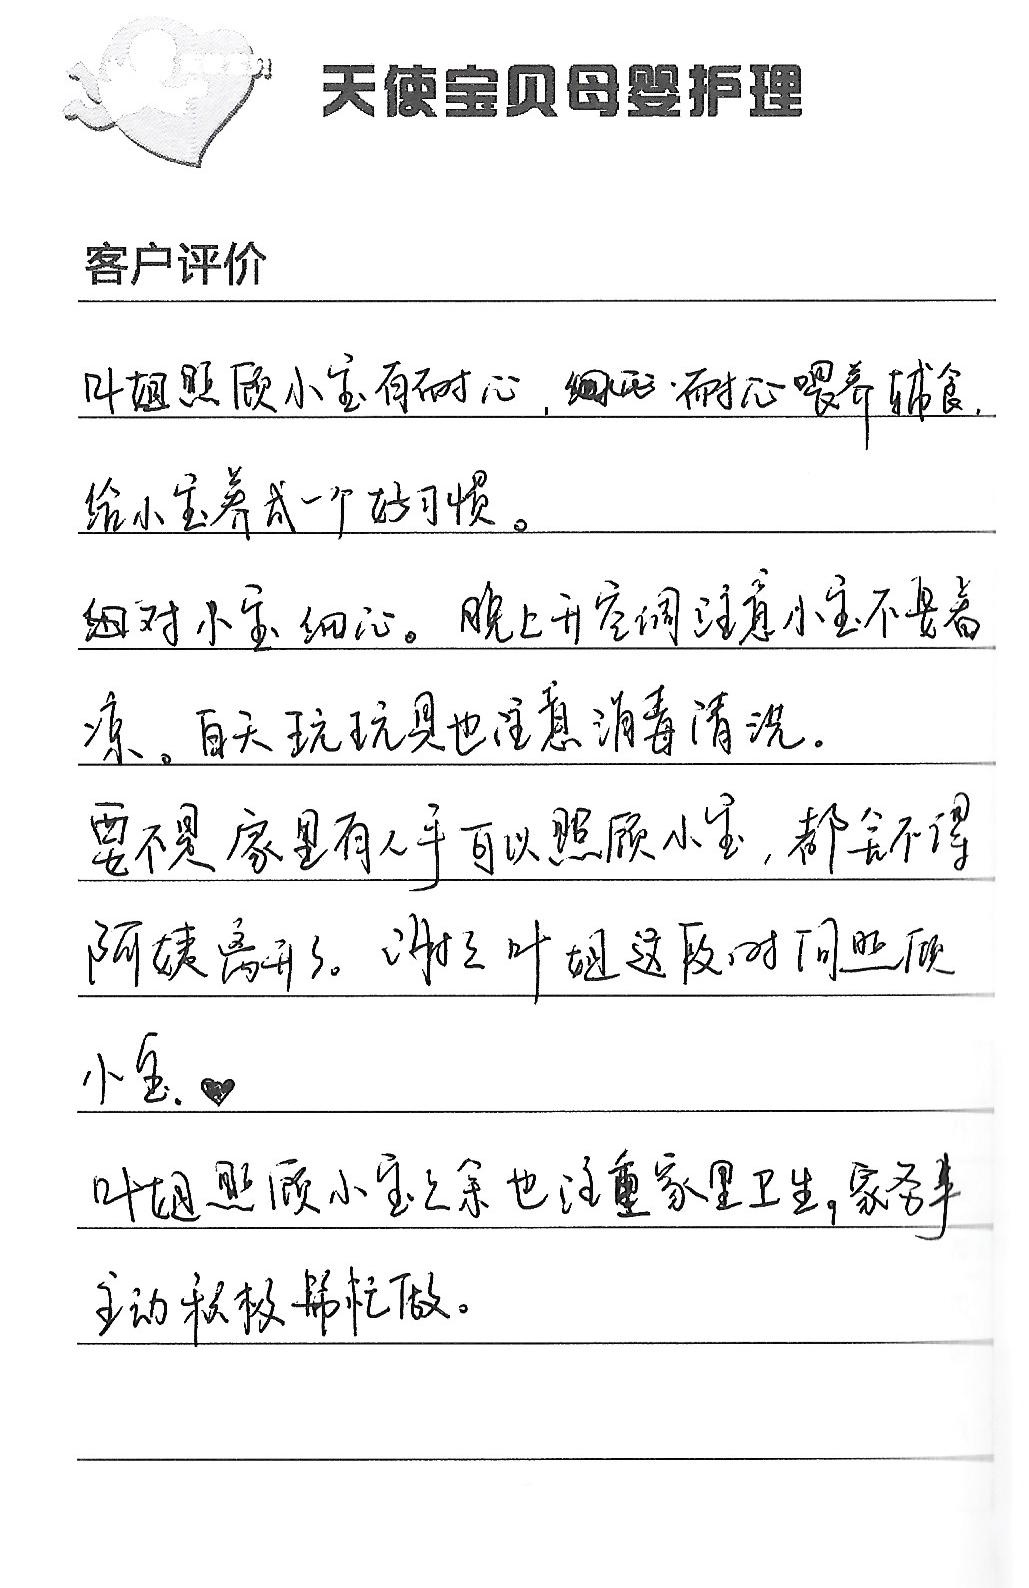 天使宝贝母婴护理
客户评价
叶姐照顾小宝有耐心,耐心喂养辅食,
给小宝养成一个好习惯。
对小宝细心。晚上开空调注意小宝不要着
凉。白天玩玩具也注意消毒清洗.
要不是家里有人手可以照顾小宝,都舍不得
阿姨离开了。谢谢叶姐这段时间照顾
小宝.♥
叶姐照顾小宝之余也注重家里卫生,家务事
主动积极帮忙做。